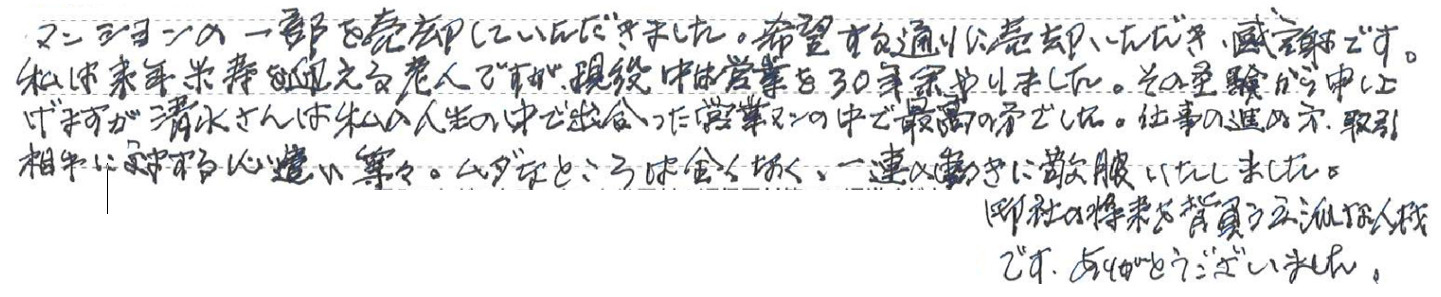 マンションの一部を売却していただきました。希望する通りに売却いただき、感謝です。
私は来年米寿を迎える老人ですが、現役中は営業を30年余やりました。その経験から申し上
げますが清水さんは私の人生の中で出会った営業マンの中で最高の方でした。仕事の進め方、取引
相手に対する心遣い等々。ムダなところは全くなく、一連の動きに敬服いたしました。
御社の将来を背負う立派な人材
です。ありがとうございました。